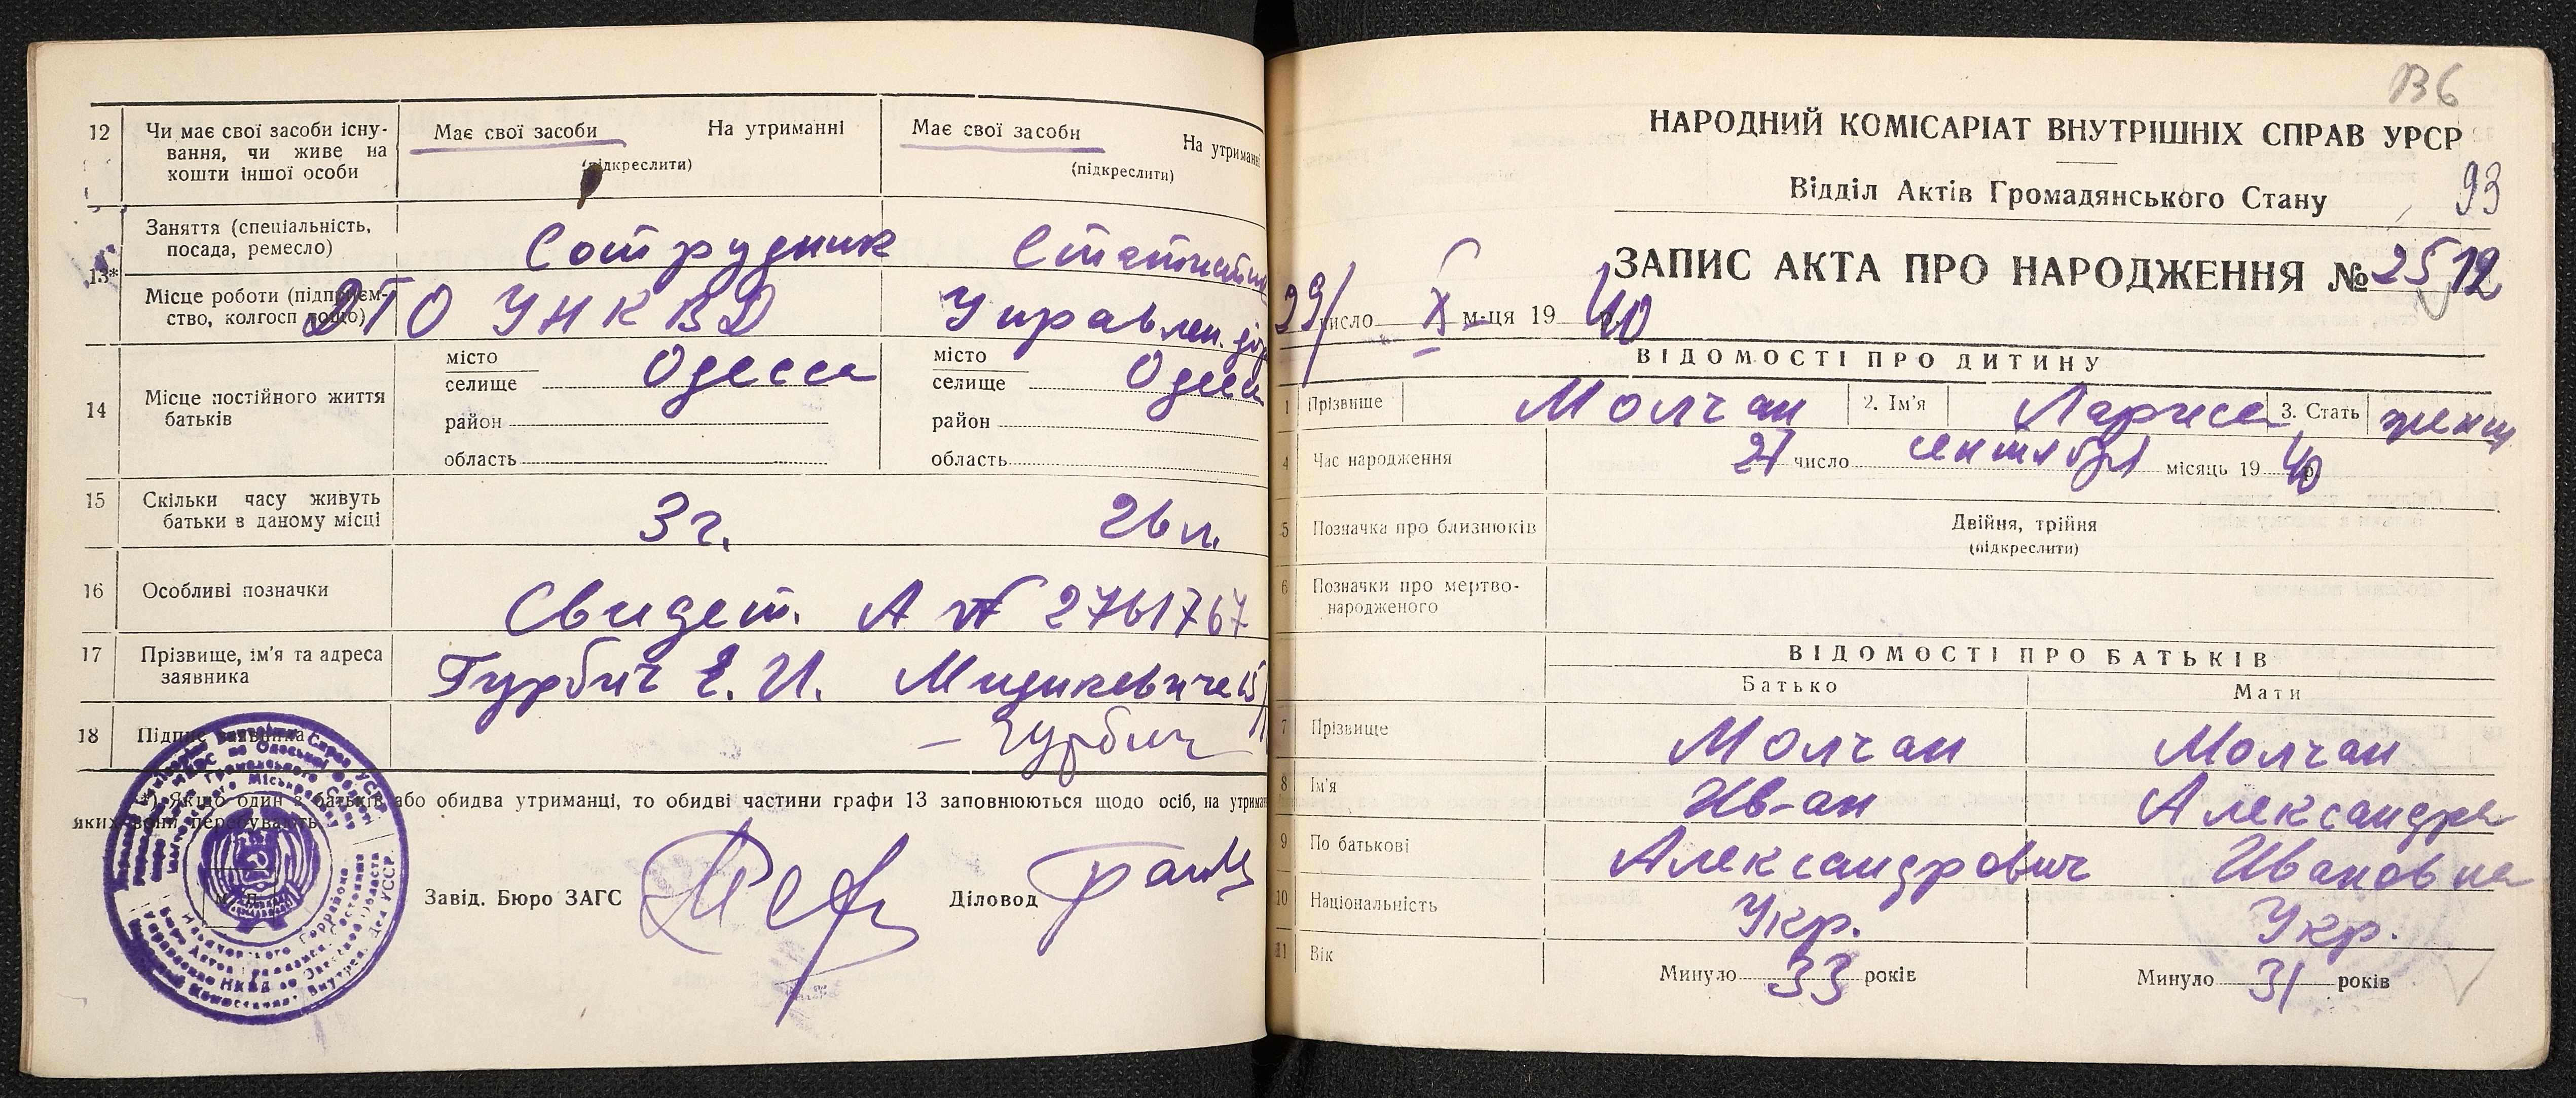 12 Чи має свої засоби існу-
вання, чи живе на
кошти іншої особи
Має свої засоби На утриманні
(підкреслити)
Має свої засоби На утриманні
(підкреслити)
13*
Заняття (спеціальність,
посада, ремесло)
Сотрудник
Місце роботи (підприєм-
ство, колгосп тощо)
ДТО УНКВД
Управлен.
14 Місце постійного життя
батьків
місто
селище Одесса
район
область
місто
селище Одесса
район
область
15 Скільки часу живуть
батьки в даному місці
3 г. 26 л.
16 Особливі позначки
Свидет. А № 2761767
17 Прізвище, ім'я та адреса
заявника
Гурбич Е. И. Мицкевича
18 Підпис заявника
Гурбич
*) Якщо один з батьків або обидва утриманці, то обидві частини графи 13 заповнюються щодо осіб, на утриман
яких вони перебувають.
Завід. Бюро ЗАГС
Діловод
136
НАРОДНИЙ КОМІСАРІАТ ВНУТРІШНІХ СПРАВ УРСР
93
Відділ Актів Громадянського Стану
ЗАПИС АКТА ПРО НАРОДЖЕННЯ № 2512
29 число X м-ця 1940 р.
ВІДОМОСТІ ПРО ДИТИНУ
1 Прізвище Молчан 2. Ім'я Лариса 3. Стать женщ
4 Час народження 27 число сентября місяць 1940 р.
5 Позначка про близнюків
Двійня, трійня
(підкреслити)
6 Позначки про мертво-
народженого
ВІДОМОСТІ ПРО БАТЬКІВ
Батько Мати
7 Прізвище Молчан Молчан
8 Ім'я Ив-ан Александра
9 По батькові Александрович Ивановна
10 Національність Укр. Укр.
11 Вік Минуло 33 років Минуло 31 років